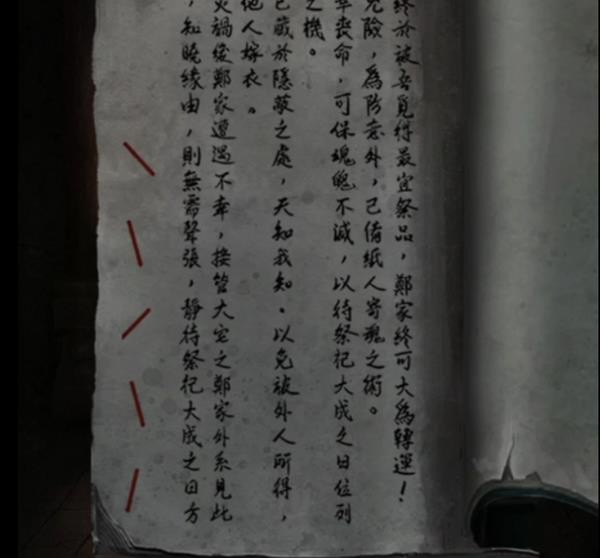 終於被吾覓得最宜祭品，鄭家終可大為轉運！
危險，為防意外，已備紙人寄魂之術。
年喪命，可保魂魄不滅，以待祭祀大成之日位列
之機。
已藏於隱蔽之處，天知我知。以免被外人所得，
他人嫁衣。
火禍後鄭家遭遇不幸，接管大宅之鄭家外系見此
，知曉緣由，則無需聲張，靜待祭祀大成之日方